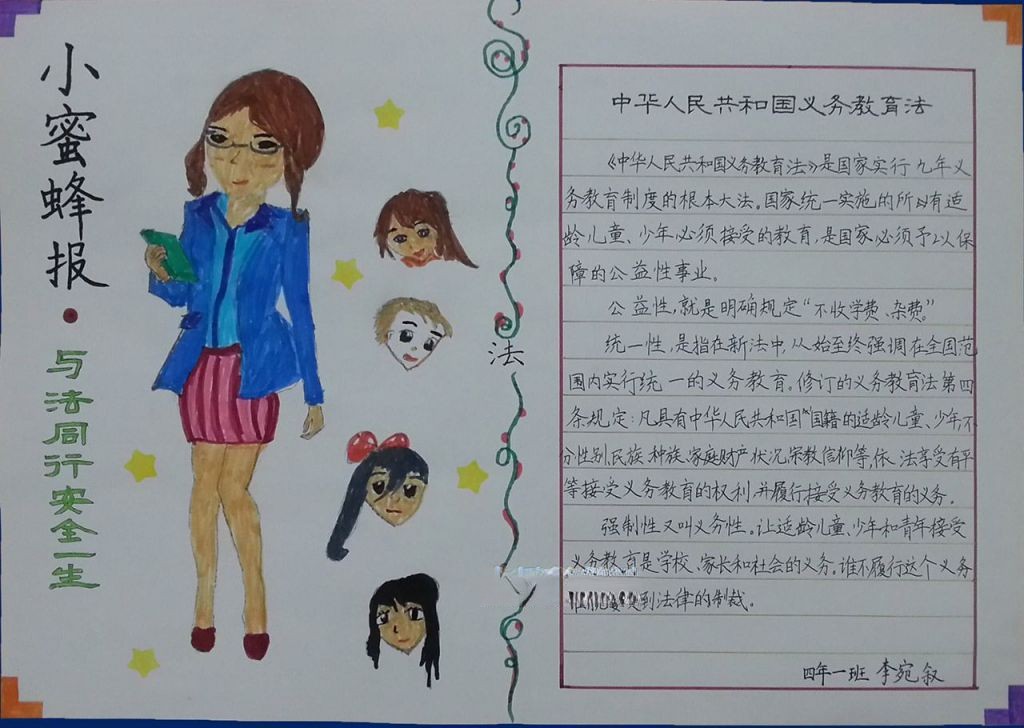 小蜜蜂报
与法同行安全一生
法
中华人民共和国义务教育法
《中华人民共和国义务教育法》是国家实行九年义
务教育制度的根本大法。国家统一实施的所以有适
龄儿童、少年必须接受的教育,是国家必须予以保
障的公益性事业。
公益性,就是明确规定“不收学费、杂费”
统一性,是指在新法中,从始至终强调在全国范
围内实行统一的义务教育。修订的义务教育法第四
条规定:凡具有中华人民共和国国籍的适龄儿童、少年,不
分性别、民族、种族、家庭财产状况、宗教信仰等,依法享受有平
等接受义务教育的权利,并履行接受义务教育的义务。
强制性又叫义务性。让适龄儿童、少年和青年接受
义务教育是学校、家长和社会的义务。谁不履行这个义务
到法律的制裁。
四年一班 李宛叙